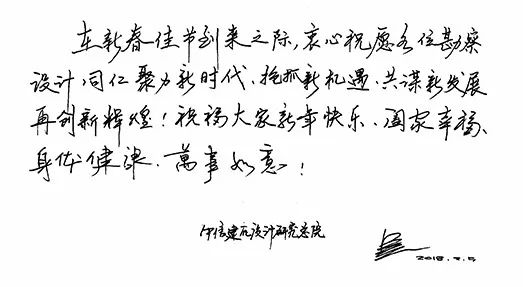 在新春佳节到来之际,衷心祝愿各位勘察
设计同仁聚力新时代、抢抓新机遇、共谋新发展
再创新辉煌!祝福大家新年快乐、阖家幸福、
身体健康、萬事如意!
中信建筑设计研究总院
2018.2.5